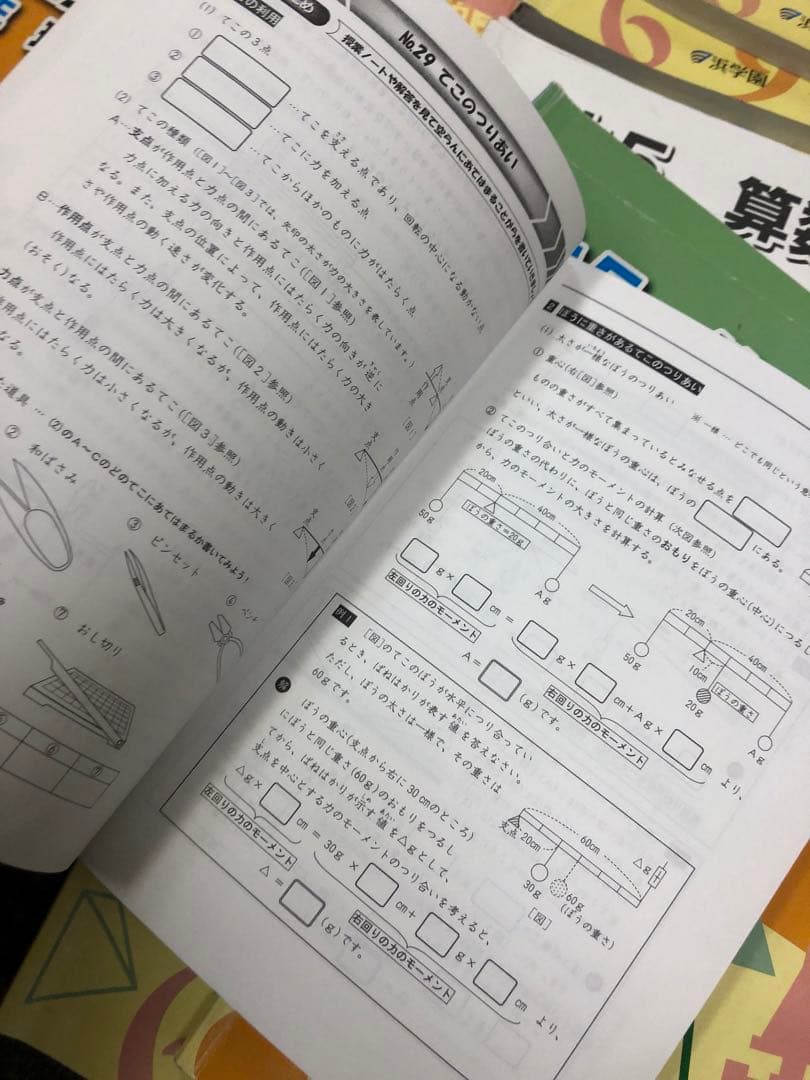 No.29 てこのつりあい
授業ノートや解答を見て空らんにあてはまることがらを書いていき
の利用
(1) てこの3点
① …てこを支える点であり、回転の中心になる動かない点
② …てこに力を加える点
③ …てこからほかのものに力がはたらく点
(2) てこの種類([図1]~[図3]では、矢印の太さが力の大きさを表しています。)
A…支点が作用点と力点の間にあるてこ([図1]参照)
力点に加える力の向きと作用点にはたらく力の向きが逆に
なる。また、支点の位置によって、作用点にはたらく力の大き
さや作用点の動く速さが変化する。
B…作用点が支点と力点の間にあるてこ([図2]参照)
作用点にはたらく力は大きくなるが、作用点の動きは小さく
(おそく)なる。
力点が支点と作用点の間にあるてこ([図3]参照)
作用点にはたらく力は小さくなるが、作用点の動きは大きく
なる。
た道具 … (2)のA~Cのどのてこにあてはまるか書いてみよう!
② 和ばさみ
③ ピンセット
⑥ ペンチ
⑦ おし切り
⑥ ⑦
支点
[図1]
支点
[図2]
2 ぼうに重さがあるてこのつりあい
(1) 太さが一様なぼうのつりあい ※ 一様 … どこでも同じという意
① 重心(右[図]参照)
ものの重さがすべて集まっているとみなせる点を
といい、太さが一様なぼうの重心は、ぼうの にある。
② てこのつり合いと力のモーメントの計算 (次図参照)
ぼうの重さの代わりに、ぼうと同じ重さのおもりをぼうの重心(中心)につるし
から、力のモーメントの大きさを計算する。
20cm 40cm
ぼうの重さ=20g
50g
Ag
20cm 40cm
10cm
ぼうの重さ
50g
20g
Ag
g× cm = g× cm+Ag× cm より、
左回りの力のモーメント 右回りの力のモーメント
A= (g)です。
例1 [図]のてこのぼうが水平につり合ってい
るとき、ばねはかりが表す値を答えなさい。
ただし、ぼうの太さは一様で、その重さは
60gです。
解 ぼうの重心(支点から右に30cmのところ)
にぼうと同じ重さ(60g)のおもりをつるし
てから、ばねはかりが示す値を△gとして、
支点を中心とする力のモーメントのつり合いを考えると、
△g× cm = 30g × cm+ g× cm より、
左回りの力のモーメント 右回りの力のモーメント
△= (g)です。
60cm
支点 20cm
△g
30g
60g
(ぼうの重さ)
[図]
浜学園
浜学園
5
算数